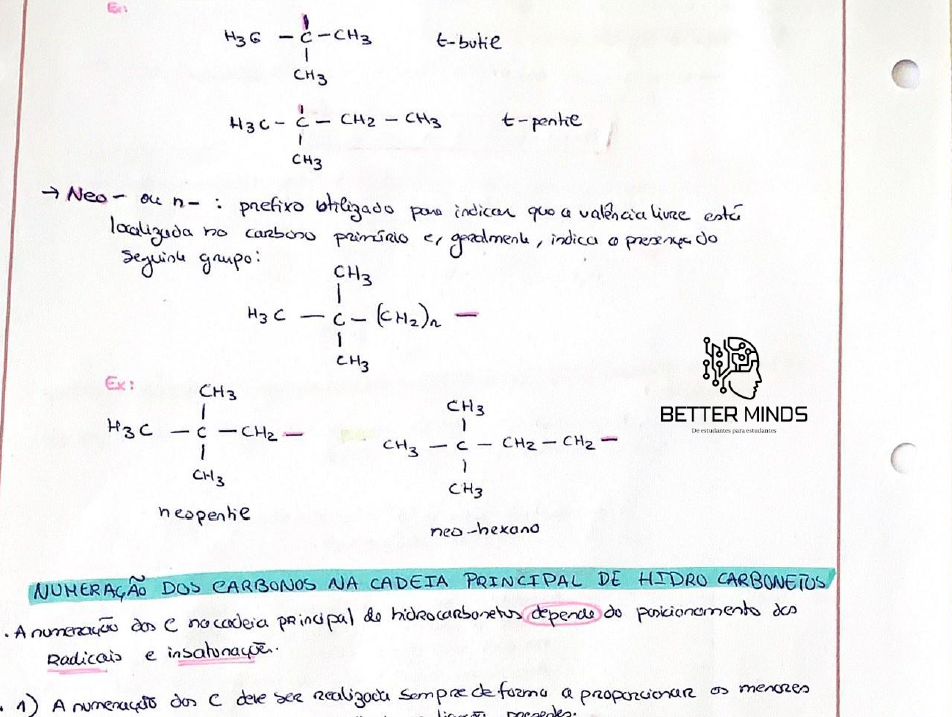 Ex:
H3C – C – CH3 t-butil
CH3
H3C – C – CH2 – CH3 t-pentil
CH3
→ Neo- ou n- : prefixo utilizado para indicar que a valência livre está
localizada no carbono primário e, geralmente, indica a presença do
seguinte grupo:
CH3
H3C – C – (CH2)n –
CH3
Ex:
CH3
H3C – C – CH2 –
CH3
neopentil
CH3
CH3 – C – CH2 – CH2 –
CH3
neo-hexano
BETTER MINDS
De estudantes para estudantes
NUMERAÇÃO DOS CARBONOS NA CADEIA PRINCIPAL DE HIDROCARBONETOS
. A numeração dos C na cadeia principal de hidrocarbonetos depende do posicionamento dos
Radicais e insaturação.
. 1) A numeração dos C deve ser realizada sempre de forma a proporcionar os menores